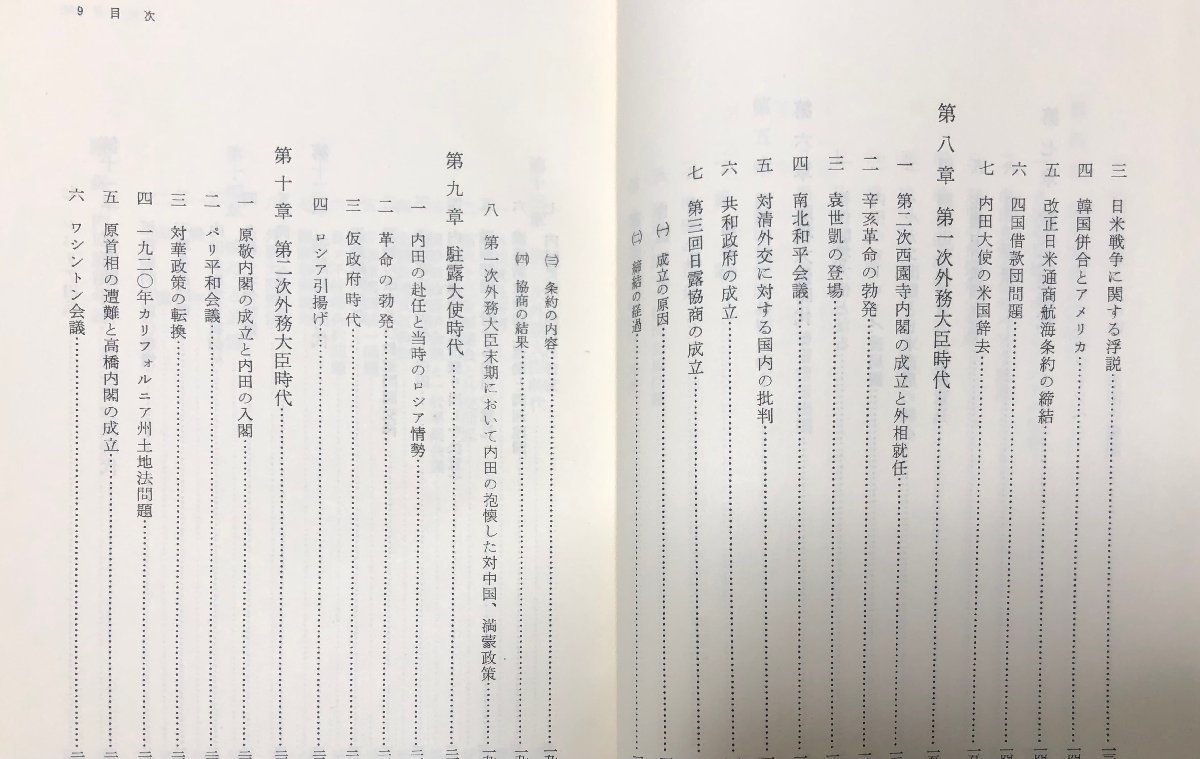 三 日米戦争に関する浮説
四 韓国併合とアメリカ
五 改正日米通商航海条約の締結
六 四国借款団問題
七 内田大使の米国辞去
第八章 第一次外務大臣時代
一 第二次西園寺内閣の成立と外相就任
二 辛亥革命の勃発
三 袁世凱の登場
四 南北和平会議
五 対清外交に対する国内の批判
六 共和政府の成立
七 第三回日露協商の成立
(一) 成立の原因
(二) 締結の経過
9 目次
(三) 条約の内容
(四) 協商の結果
八 第一次外務大臣末期において内田の抱懐した対中国、満蒙政策
第九章 駐露大使時代
一 内田の赴任と当時のロシア情勢
二 革命の勃発
三 仮政府時代
四 ロシア引揚げ
第十章 第二次外務大臣時代
一 原敬内閣の成立と内田の入閣
二 パリ平和会議
三 対華政策の転換
四 一九二〇年カリフォルニア州土地法問題
五 原首相の遭難と高橋内閣の成立
六 ワシントン会議